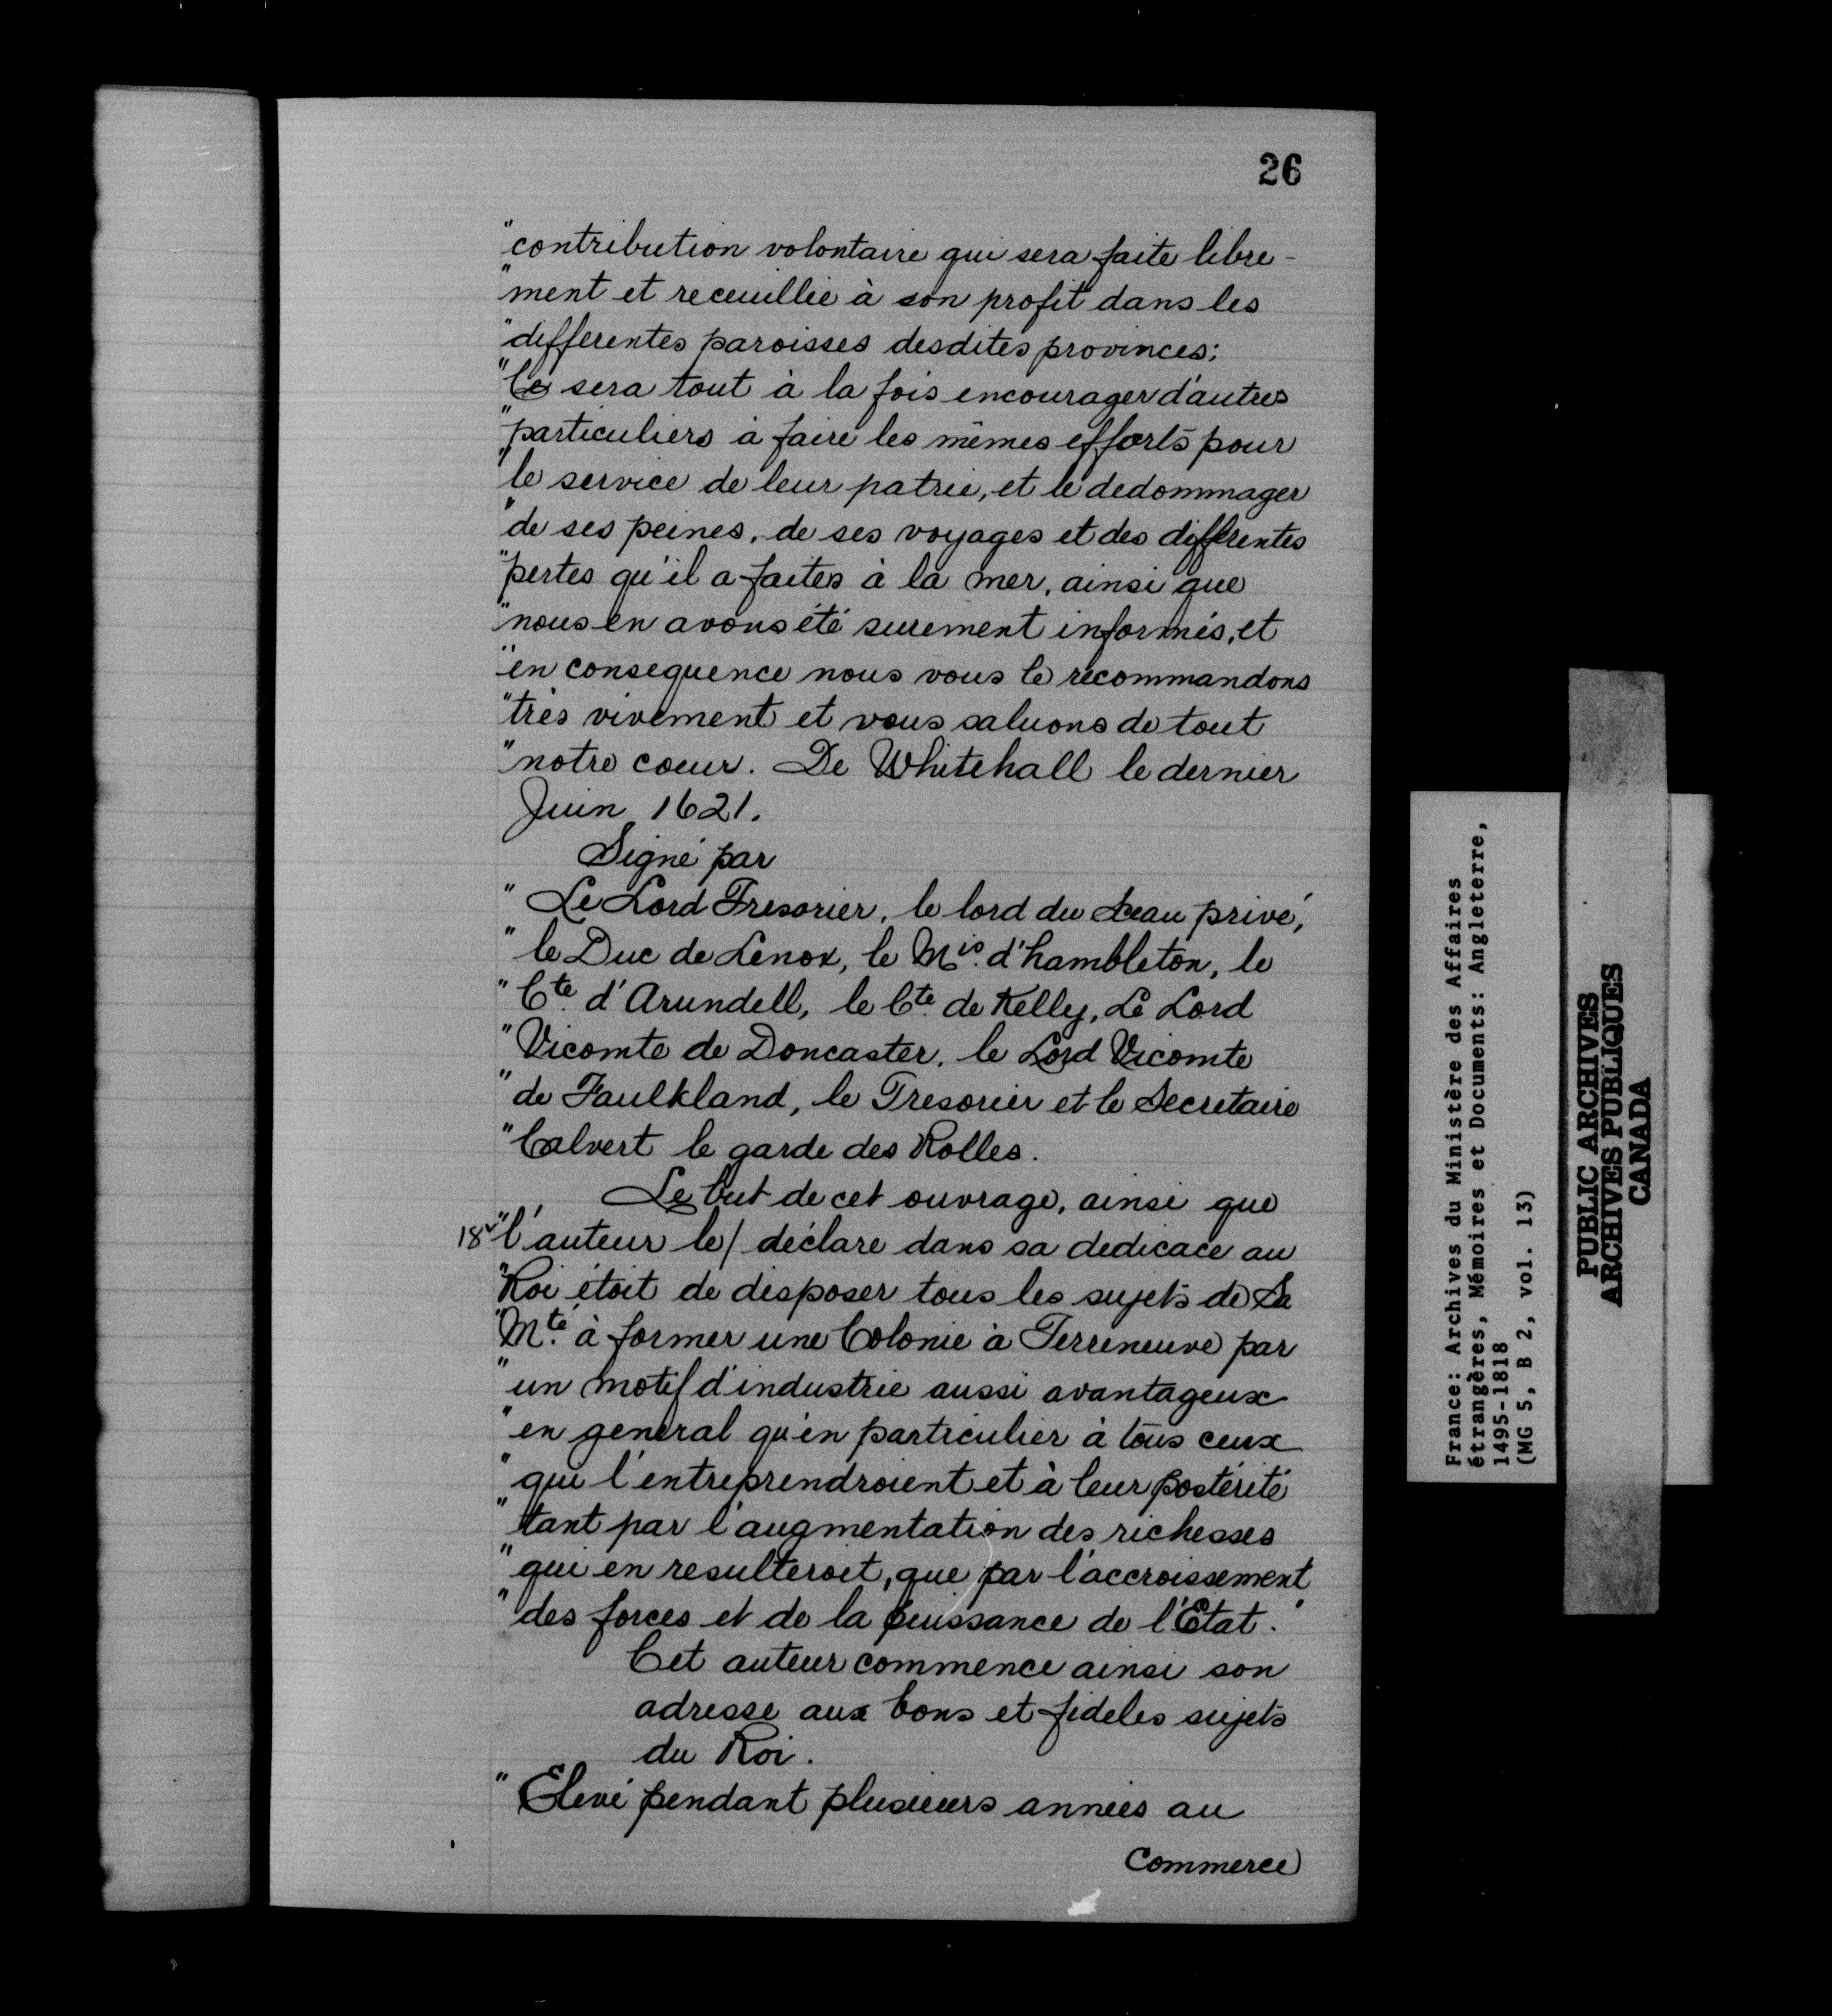 26
"contribution volontaire qui sera faite libre-
"ment et receuillie à son profit dans les
"differentes paroisses desdites provinces;
"Ce sera tout à la fois encourager d'autres
"particuliers à faire les mêmes efforts pour
"le service de leur patrie, et le dedommager
"de ses peines, de ses voyages et des differentes
"pertes qu'il a faites à la mer, ainsi que
"nous en avons été surement informés, et
"en consequence nous vous le recommandons
"très vivement et vous saluons de tout
"notre coeur. De Whitehall le dernier
Juin 1621.
Signé par
" Le Lord Tresorier, le lord du Sceau privé,
" le Duc de Lenox, le Mis. d'hambleton, le
" Cte. d'Arundell, le Cte. de Kelly, Le Lord
" Vicomte de Doncaster, le Lord Vicomte
" de Faulkland, le Tresorier et le Secretaire
" Calvert le garde des Rolles.
Le but de cet ouvrage, ainsi que
18v "l'auteur le/ déclare dans sa dedicace au
"Roi étoit de disposer tous les sujets de Sa
"Mté. à former une Colonie à Terreneuve par
"un motif d'industrie aussi avantageux
"en general qu'en particulier à tous ceux
"qui l'entreprendroient et à leur postérité
"tant par l'augmentation des richesses
"qui en resulteroit, que par l'accroissement
"des forces et de la puissance de l'Etat."
Cet auteur commence ainsi son
adresse aux bons et fideles sujets
du Roi.
" Elevé pendant plusieurs années au
Commerce
France: Archives du Ministère des Affaires
étrangères, Mémoires et Documents: Angleterre,
1495-1818
(MG 5, B 2, vol. 13)
PUBLIC ARCHIVES
ARCHIVES PUBLIQUES
CANADA